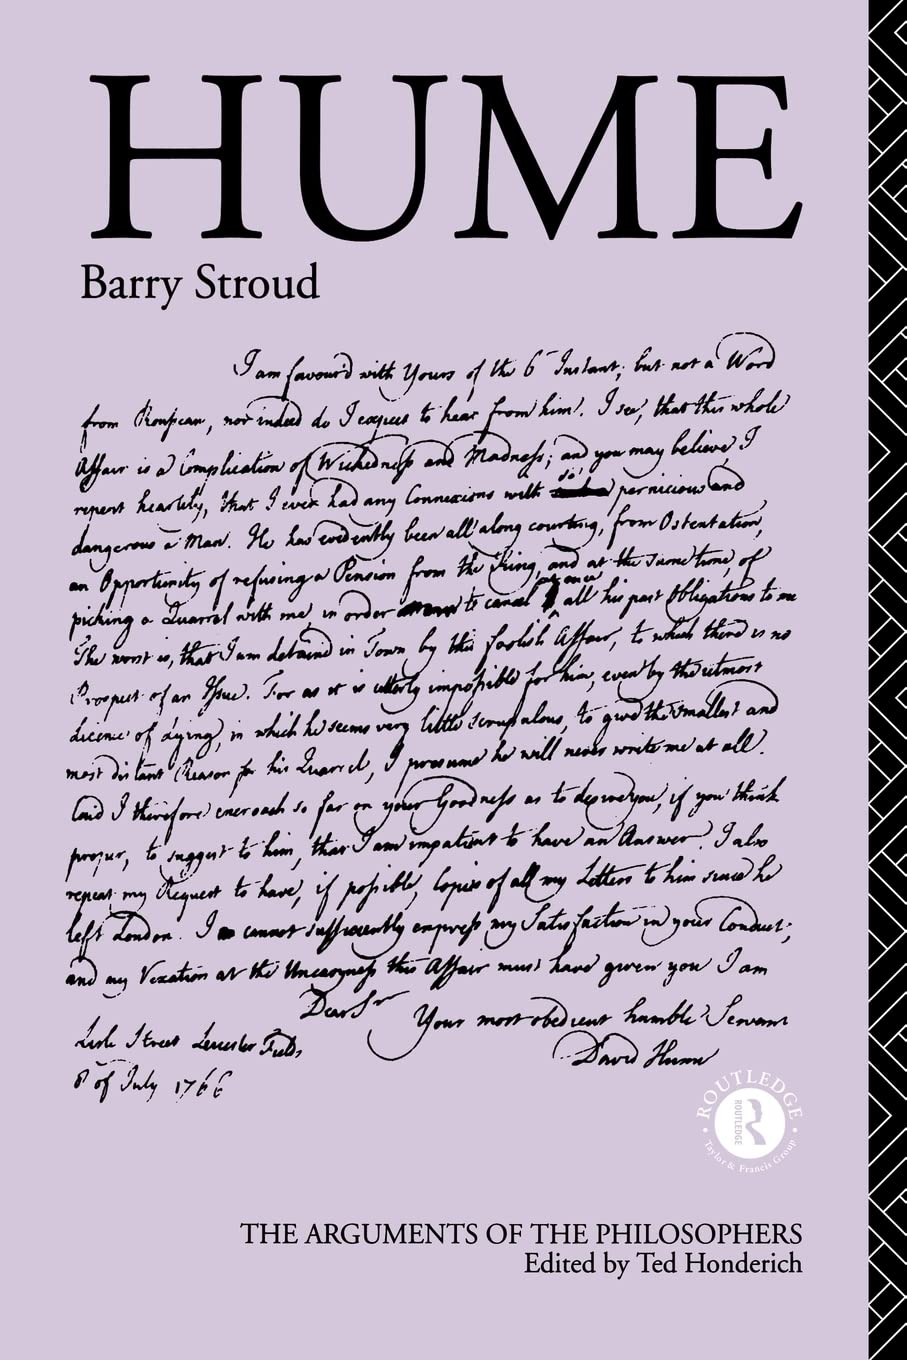 HUME
Barry Stroud
I am favour'd with Yours of the 6th Instant; but not a Word
from Rousseau, nor indeed do I expect to hear from him. I see, that this whole
Affair is a Complication of Wickedness and Madness; and you may believe, I
repent heartily, that I ever had any Connexions with so pernicious and
dangerous a Man. He has evidently been all along courting, from Ostentation,
an Opportunity of refusing a Pension from the King, and at the same time, of
picking a Quarrel with me, in order to cancel at once all his past Obligations to me
The worst is, that I am detained in Town by this foolish Affair, to which there is no
Prospect of an Issue. For as it is utterly impossible for him, even by the utmost
Licence of Lying, in which he seems very little scrupulous, to give the smallest and
most distant Reason for his Quarrel, I presume he will never write me at all.
Coud I therefore encroach so far on your Goodness as to desire you, if you think
proper, to suggest to him, that I am impatient to have an Answer. I also
repeat my Request to have, if possible, Copies of all my Letters to him since he
left London. I cannot sufficiently express my Satisfaction in your Conduct;
and my Vexation at the Uneasyness this Affair must have given you I am
Dear Sir
Your most obedient humble Servant
Lisle Street Leicester Fields
8 of July 1766
David Hume
ROUTLEDGE
ROUTLEDGE
Taylor & Francis Group
THE ARGUMENTS OF THE PHILOSOPHERS
Edited by Ted Honderich